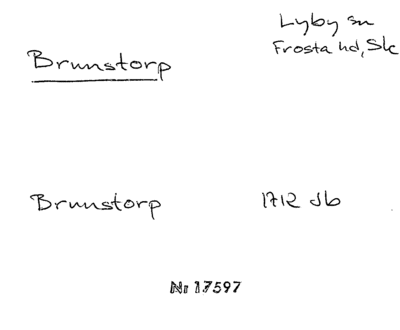 Lyby sn
Brunstorp
Frosta hd, Sk
Brunstorp 1712 Jb
Nr 17597